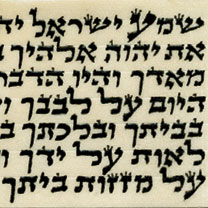 שמע ישראל יה
את יהוה אלהיך ב
מאדך והיו הדבר
היום על לבבך ו
בביתך ובלכתך ב
לאות על ידך ו
על מזזות ביתך